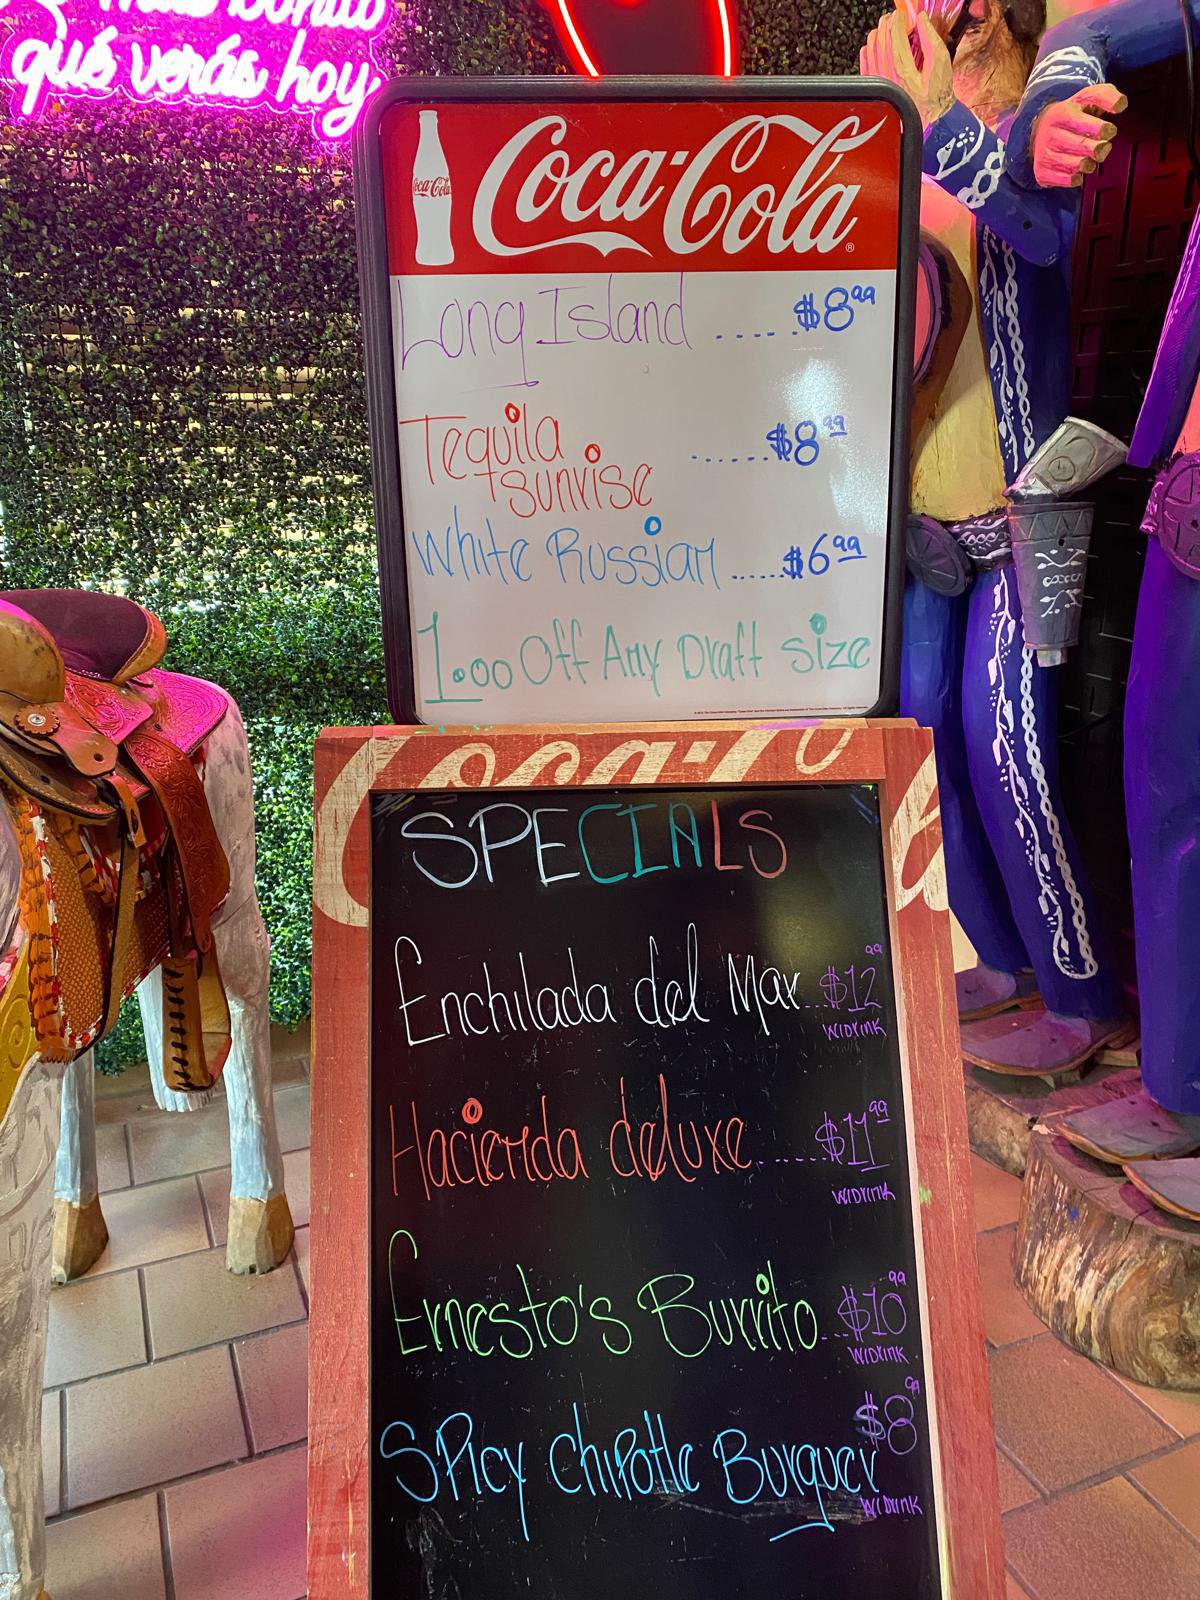 más bonito
qué verás hoy
Coca-Cola
Coca-Cola ®
Long Island ...... $8.99
Tequila
sunrise ...... $8.99
White Russian ...... $6.99
1.00 Off Any Draft size
Coca-Co
SPECIALS
Enchilada del Mar .. $12.99
W/DrINK
Hacienda deluxe ...... $11.99
W/DrINK
Ernesto's Burrito ... $10.99
W/DrINK
Spicy Chipotle Burguer $8.99
W/DrINK